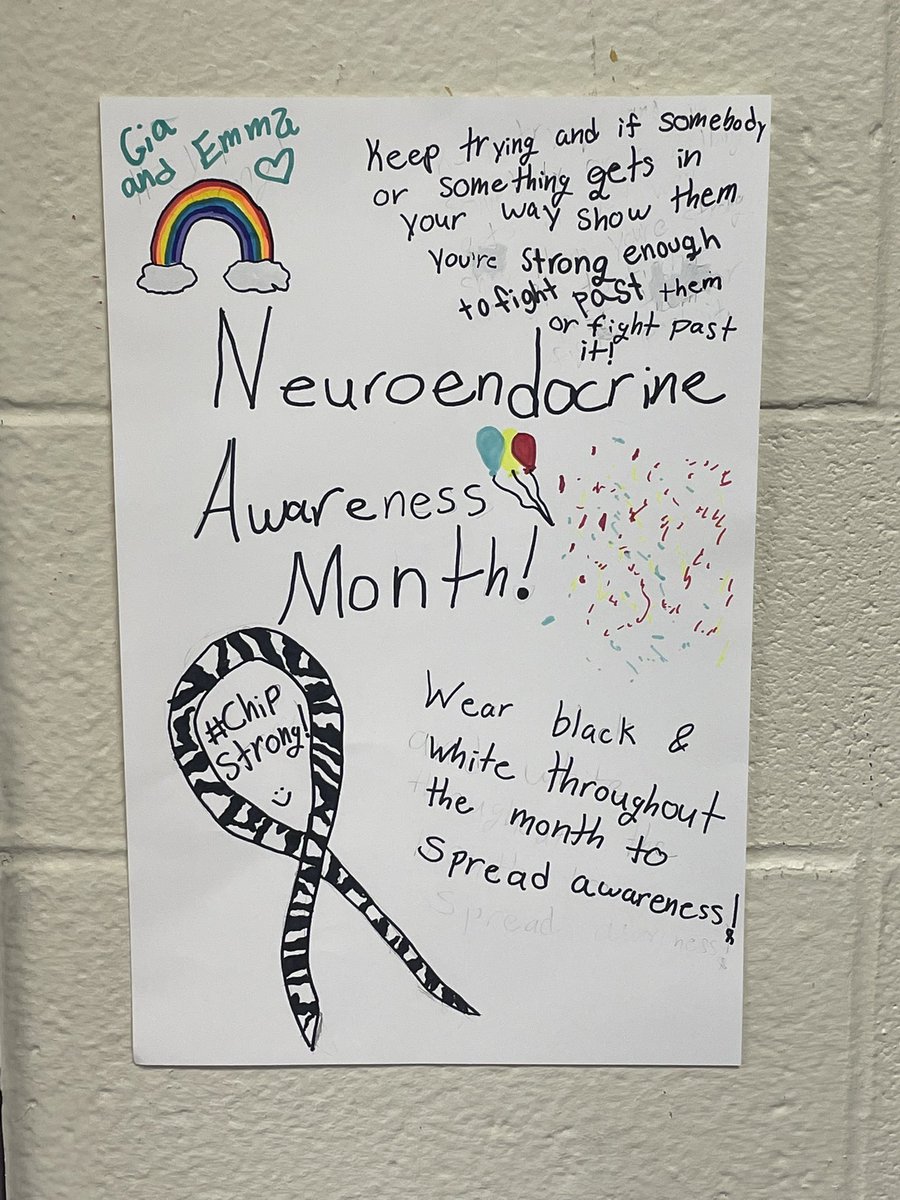 Gia
and Emma
Keep trying and if somebody
or something gets in
your way show them
you're strong enough
to fight past them
or fight past
it!
Neuroendocrine
Awareness
Month!
#Chip
Strong!
Wear black &
white throughout
the month to
spread awareness!